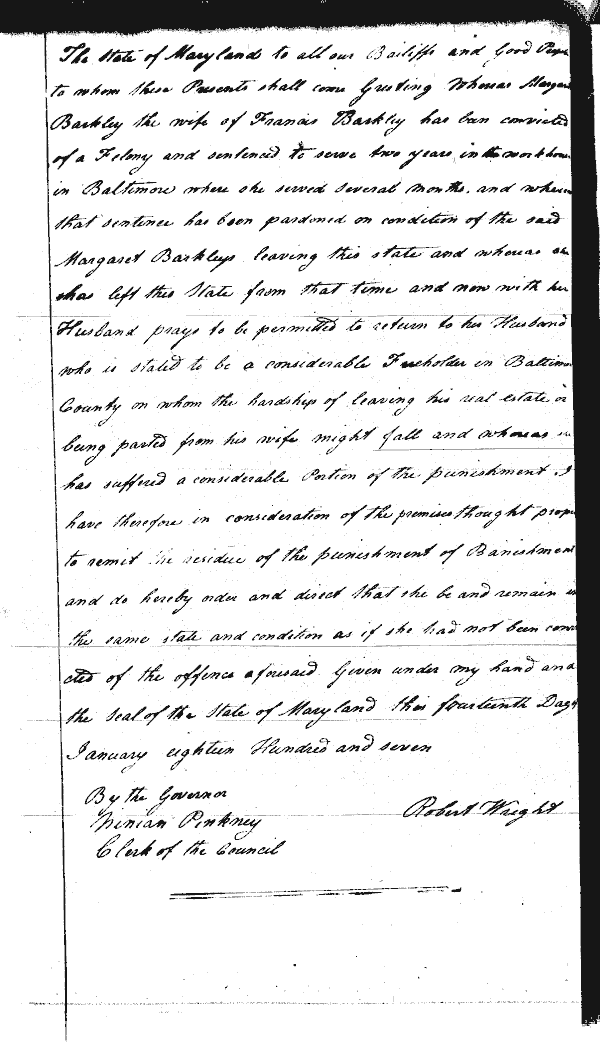 The State of Maryland to all our Bailiffs and Good Peop
to whom these Presents shall come Greeting Whereas Margar
Barkley the wife of Francis Barkley has been convicted
of a Felony and sentenced to serve two years in the workhou
in Baltimore where she served several months. and where
that sentence has been pardoned on condition of the said
Margaret Barkleys leaving this state and whereas she
has left this State from that time and now with her
Husband prays to be permitted to return to her Husband
who is stated to be a considerable Freeholder in Baltimo
County on whom the hardship of leaving his real estate or
being parted from his wife might fall and whereas
has suffered a considerable Portion of the punishment. I
have therefore in consideration of the premises thought prop
to remit the residue of the punishment of Banishment
and do hereby order and direct that she be and remain in
the same state and condition as if she had not been convi
cted of the offence aforesaid Given under my hand and
the seal of the State of Maryland this fourteenth Day of
January eighteen Hundred and seven
By the Governor
Ninian Pinkney Robert Wright
Clerk of the Council